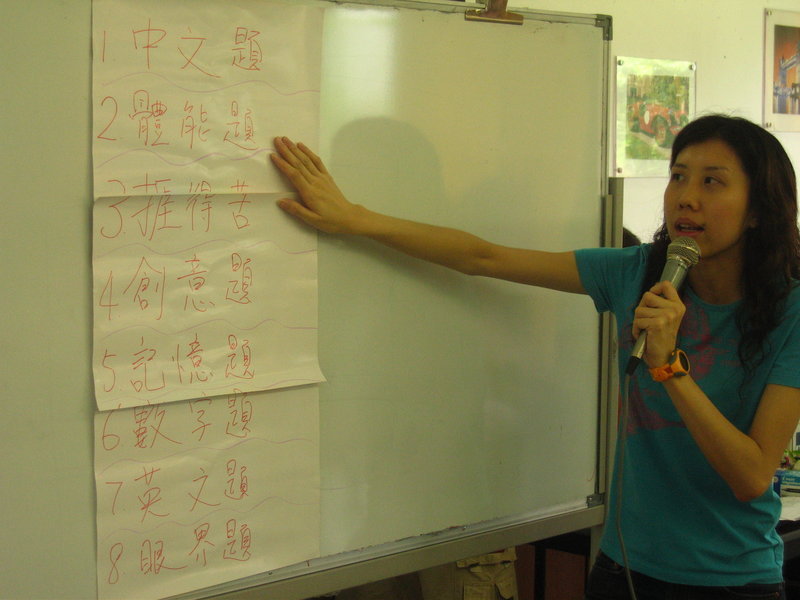 1. 中文題
2. 體能題
3. 捱得苦
4. 創意題
5. 記憶題
6. 數字題
7. 英文題
8. 眼界題